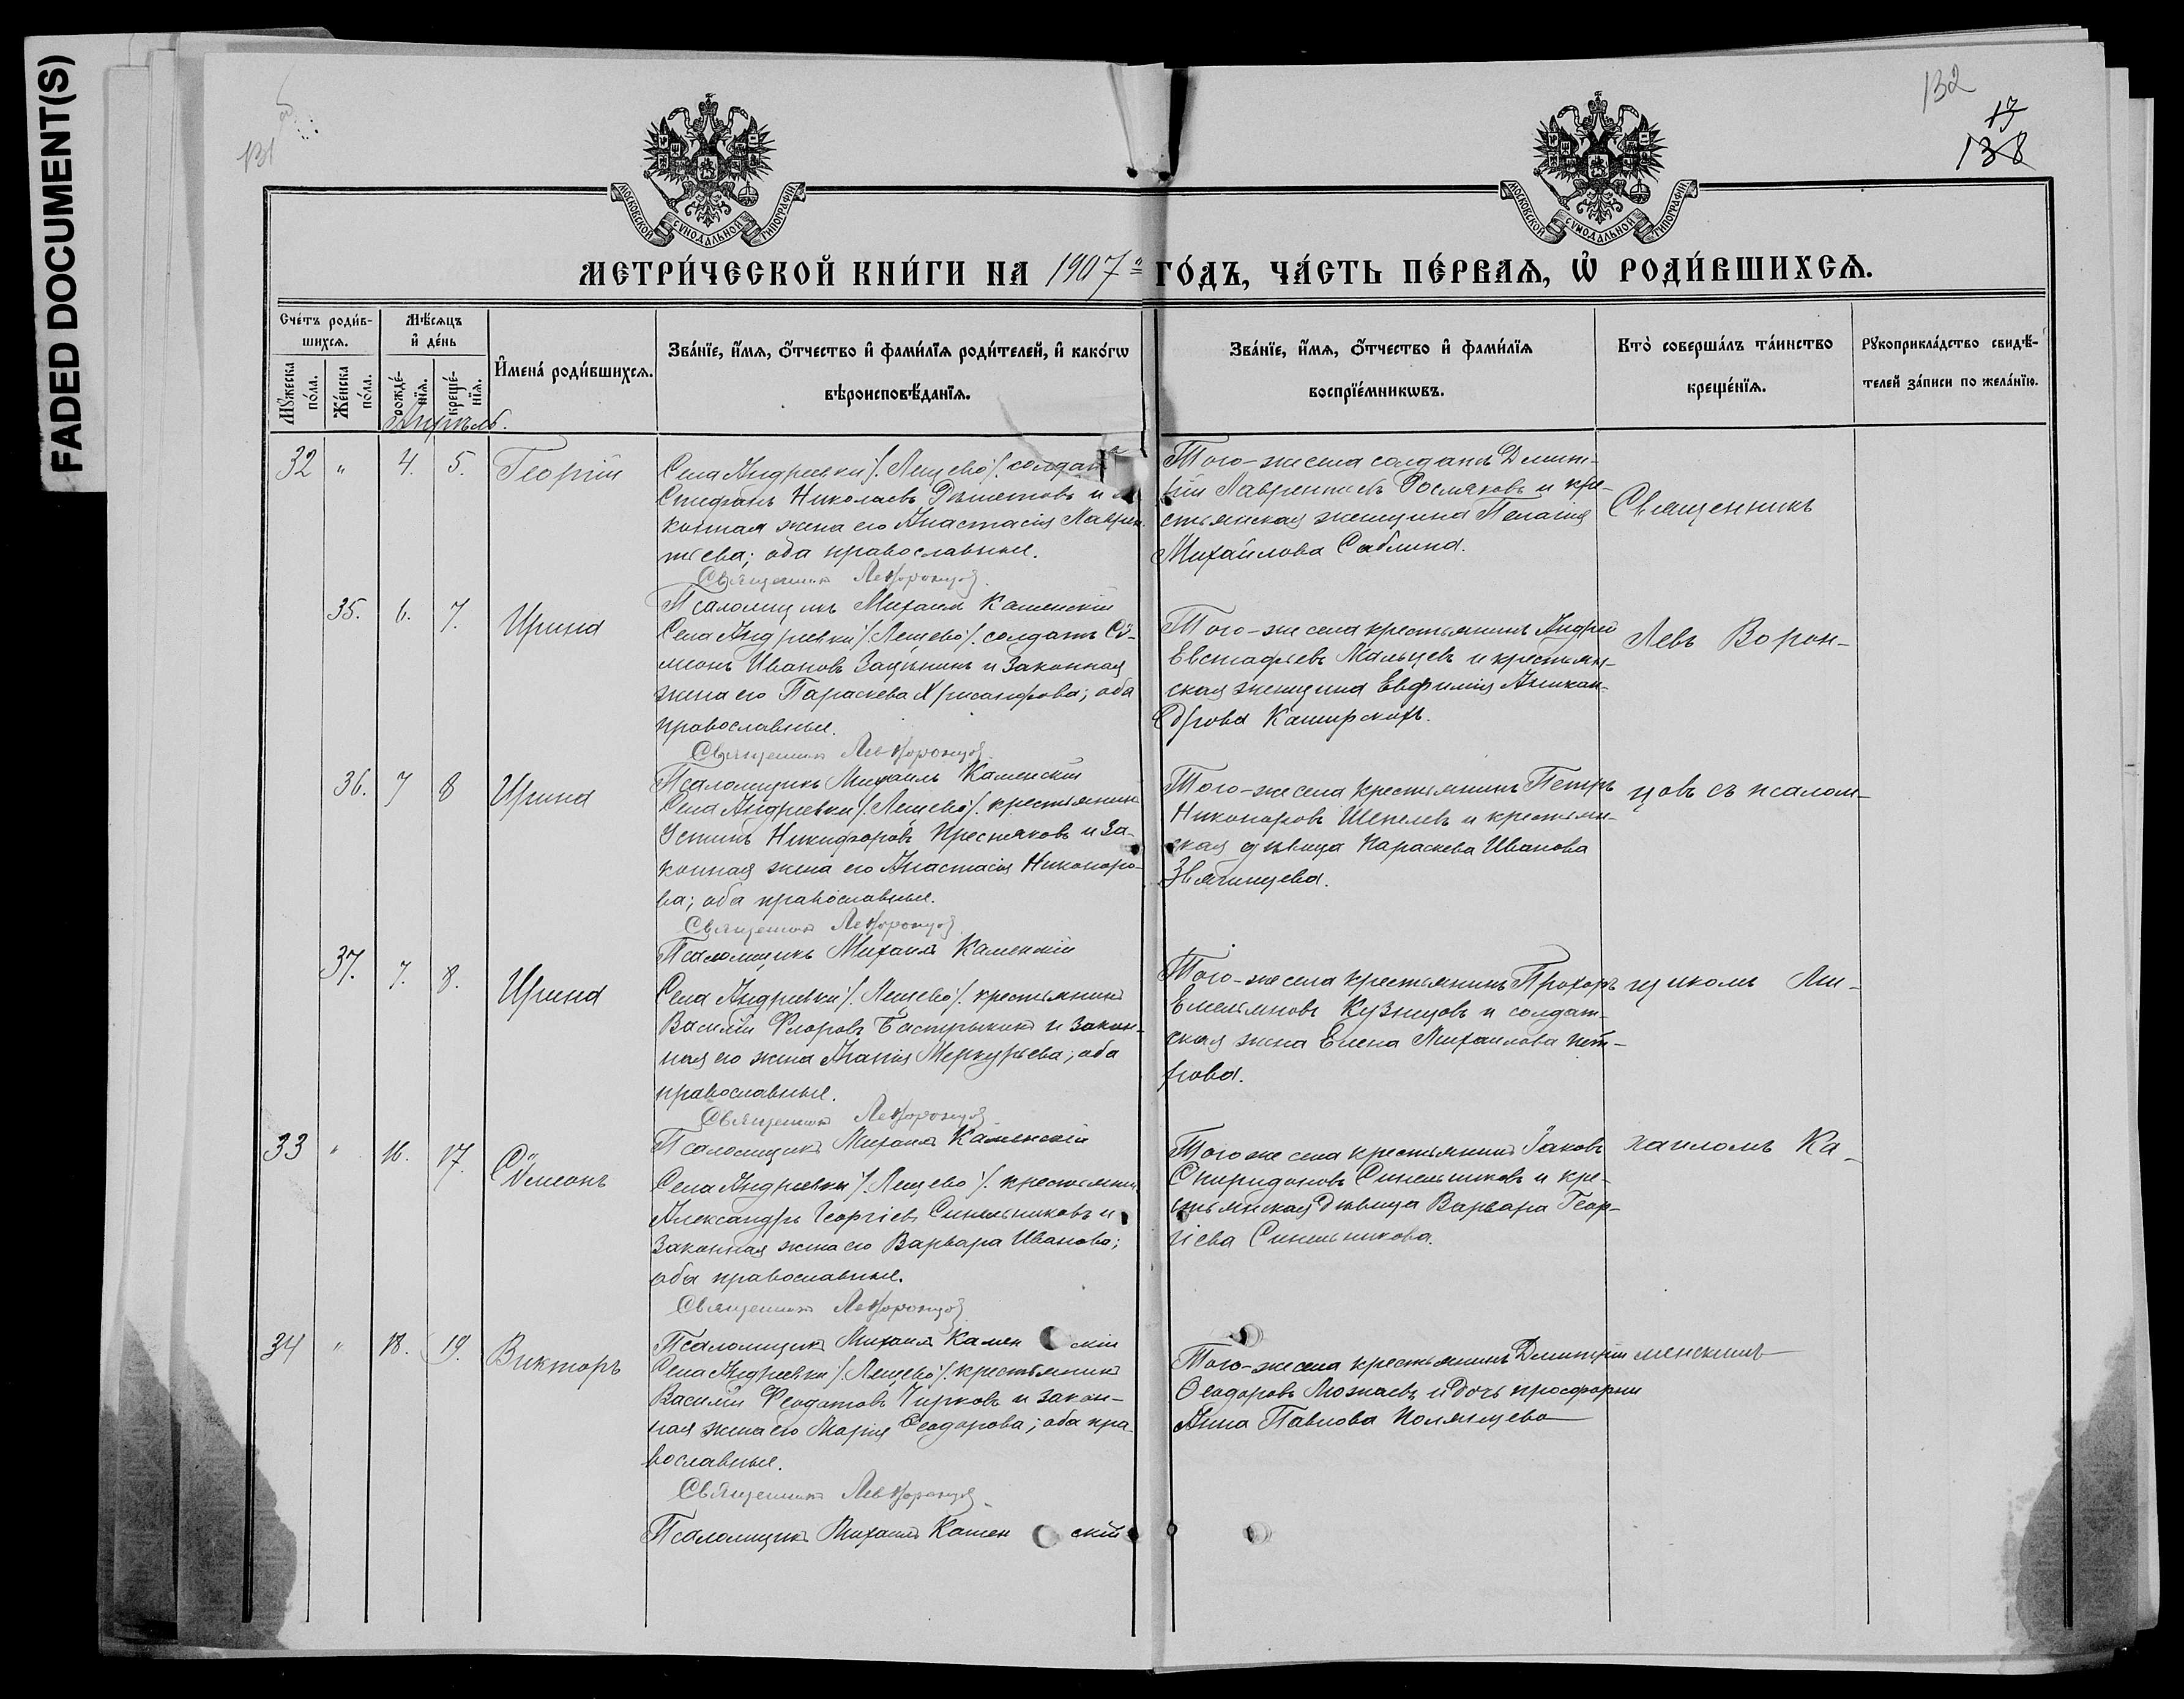 FADED DOCUMENT(S)
131
132
17
138
МОСКОВСКОЙ СѴНОДАЛЬНОЙ ТИПОГРАФІИ
МОСКОВСКОЙ СѴНОДАЛЬНОЙ ТИПОГРАФІИ
МЕТРИ́ЧЕСКОЙ КНИ́ГИ НА 1907 й ГО́ДЪ, ЧА́СТЬ ПЕ́РВАѦ, Ѡ҆ РОДИ́ВШИХСѦ.
Сче́тъ роди́в-
шихсѧ.
Мѹ́жеска по́ла.
Же́нска по́ла.
Мѣ́сѧцъ
и҆ де́нь
рожде́-нїѧ.
креще́-нїѧ.
И҆мена̀ роди́вшихсѧ.
Зва́нїе, и҆́мѧ, ѻ҆́тчество и҆ фами́лїѧ роди́телей, и҆ како́гѡ
вѣроисповѣ́данїѧ.
Зва́нїе, и҆́мѧ, ѻ҆́тчество и҆ фами́лїѧ
воспрїе́мникѡвъ.
Кто̀ соверша́лъ та́инство
креще́нїѧ.
Рѹкоприкла́дство свидѣ́-
телей за́писи по жела́нїю.
Апрѣль.
32 " 4. 5. Георгій
Села Андреевки /. Лещево /. солдатъ
Стефанъ Николаевъ и за-
конная жена его Анастасія Лаврен-
тіева; оба православные.
Священникъ Лев Воронцов
Псаломщикъ Михаилъ Каменскій
Того-же села солдатъ Димит-
рій Лаврентіевъ Росляковъ и кре-
стьянская женщина Пелагія
Михайлова Саблина.
Священникъ
35. 6. 7. Ирина
Села Андреевки /. Лещево /. солдатъ Сѵ-
меонъ Ивановъ Зацѣпинъ и законная
жена его Параскева Хрисанфова; оба
православные.
Священникъ Лев Воронцов
Псаломщикъ Михаилъ Каменскій
Того-же села крестьянинъ Андрей
Евстафіевъ Мальцевъ и крестьян-
ская женщина Евфимія Аникан-
дрова Каширскихъ.
Левъ Ворон-
36. 7 8 Ирина
Села Андреевки /. Лещево /. крестьянинъ
Устинъ Никифоровъ Пресняковъ и за-
конная жена его Анастасія Никоноро-
ва; оба православные.
Священникъ Лев Воронцов
Псаломщикъ Михаилъ Каменскій
Того-же села крестьянинъ Петръ
Никоноровъ Шепелевъ и крестьян-
ская дѣвица Параскева Иванова
Звягинцева.
цовъ съ псалом-
37. 7. 8. Ирина
Села Андреевки /. Лещево /. крестьянинъ
Василій Флоровъ Бастрыкинъ и закон-
ная его жена Агапія Меркурьева; оба
православные.
Священникъ Лев Воронцов
Псаломщикъ Михаилъ Каменскій
Того-же села крестьянинъ Прохоръ
Емельяновъ Кузнецовъ и солдат-
ская жена Елена Михаилова Пет-
рова.
щикомъ Ми-
33 " 16. 17. Сѵмеонъ
Села Андреевки /. Лещево /. крестьянинъ
Александръ Георгіевъ Синельниковъ и
законная жена его Варвара Иванова;
оба православные.
Священникъ Лев Воронцов
Псаломщикъ Михаилъ Каменскій
Того же села крестьянинъ Іаковъ
Спиридоновъ Синельниковъ и кре-
стьянская дѣвица Варвара Геор-
гіева Синельникова.
хаиломъ Ка-
34 " 18. 19. Викторъ
Села Андреевки /. Лещево /. крестьянинъ
Василій Ѳеодотовъ Чирковъ и закон-
ная жена его Марія Ѳеодорова; оба пра-
вославные.
Священникъ Лев Воронцов
Псаломщикъ Михаилъ Каменскій
Того-же села крестьянинъ Димитрій
Ѳеодоровъ Можаевъ и дочь просфорни
Анна Павлова Полянцева
менскимъ